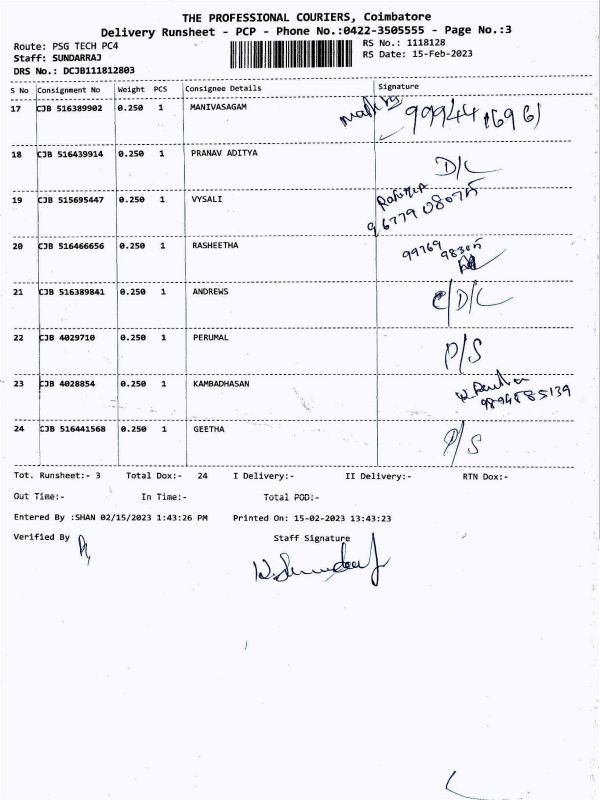 THE PROFESSIONAL COURIERS, Coimbatore
Delivery Runsheet - PCP - Phone No.:0422-3505555 - Page No.:3
Route: PSG TECH PC4
RS No.: 1118128
Staff: SUNDARRAJ
RS Date: 15-Feb-2023
DRS No.: DCJB111812803
S No Consignment No Weight PCS Consignee Details Signature
17 CJB 516389902 0.250 1 MANIVASAGAM
18 CJB 516439914 0.250 1 PRANAV ADITYA D/L
19 CJB 515695447 0.250 1 VYSALI
20 CJB 516466656 0.250 1 RASHEETHA
21 CJB 516389841 0.250 1 ANDREWS C/D/L
22 CJB 4029710 0.250 1 PERUMAL P/S
23 CJB 4028854 0.250 1 KAMBADHASAN
24 CJB 516441568 0.250 1 GEETHA P/S
Tot. Runsheet:- 3 Total Dox:- 24 I Delivery:- II Delivery:- RTN Dox:-
Out Time:- In Time:- Total POD:-
Entered By :SHAN 02/15/2023 1:43:26 PM Printed On: 15-02-2023 13:43:23
Verified By Staff Signature